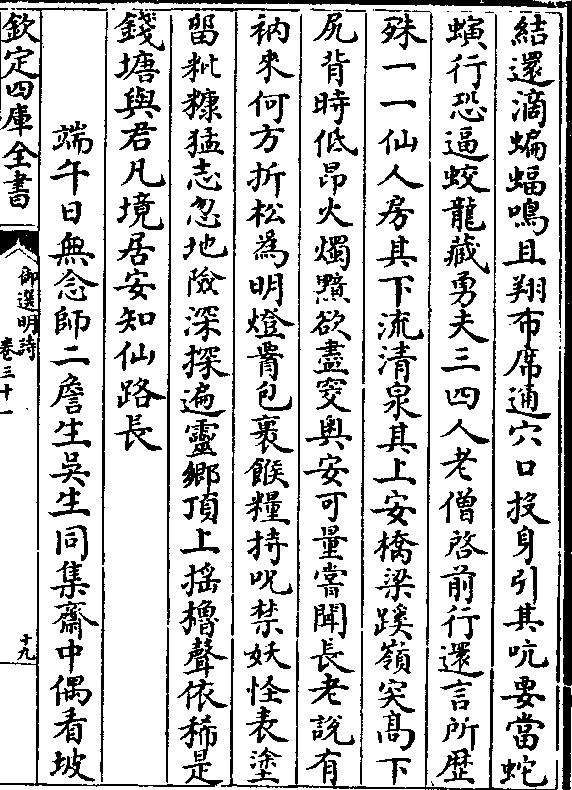 結還滴蝙蝠鳴且翔布席通穴口投身引其吭要當蛇
蟥行恐逼蛟龍藏勇夫三四人老僧啓前行還言所歴
殊一一仙人房其下流清泉其上安橋梁蹊嶺突髙下
尻背時低昻火燭黮欲盡窔奥安可量嘗聞長老說有
衲來何方折松為明燈罥包裹餱糧持呪禁妖怪表塗
畱粃糠猛志忽地險深探遍靈鄉頂上摇櫓聲依稀是
錢塘與君凡境居安知仙路長
端午日無念師二詹生吳生同集齋中偶看坡
欽定四庫全書
御選明詩
卷三十一
十九